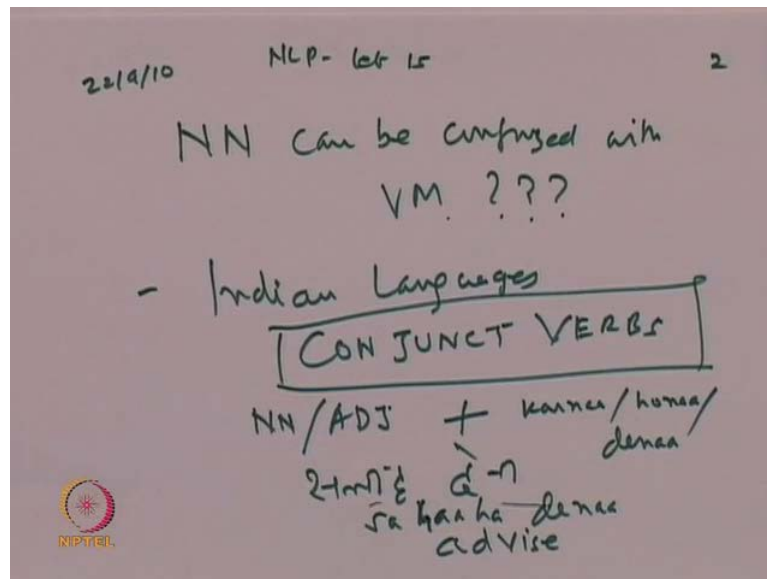 22/9/10 NLP- lec 15 2
NN can be confused with
VM. ???
- Indian Languages
CONJUNCT VERBS
NN/ADJ + karnaa/honaa/
denaa
सलाह देना
salaaha denaa
advise
NPTEL